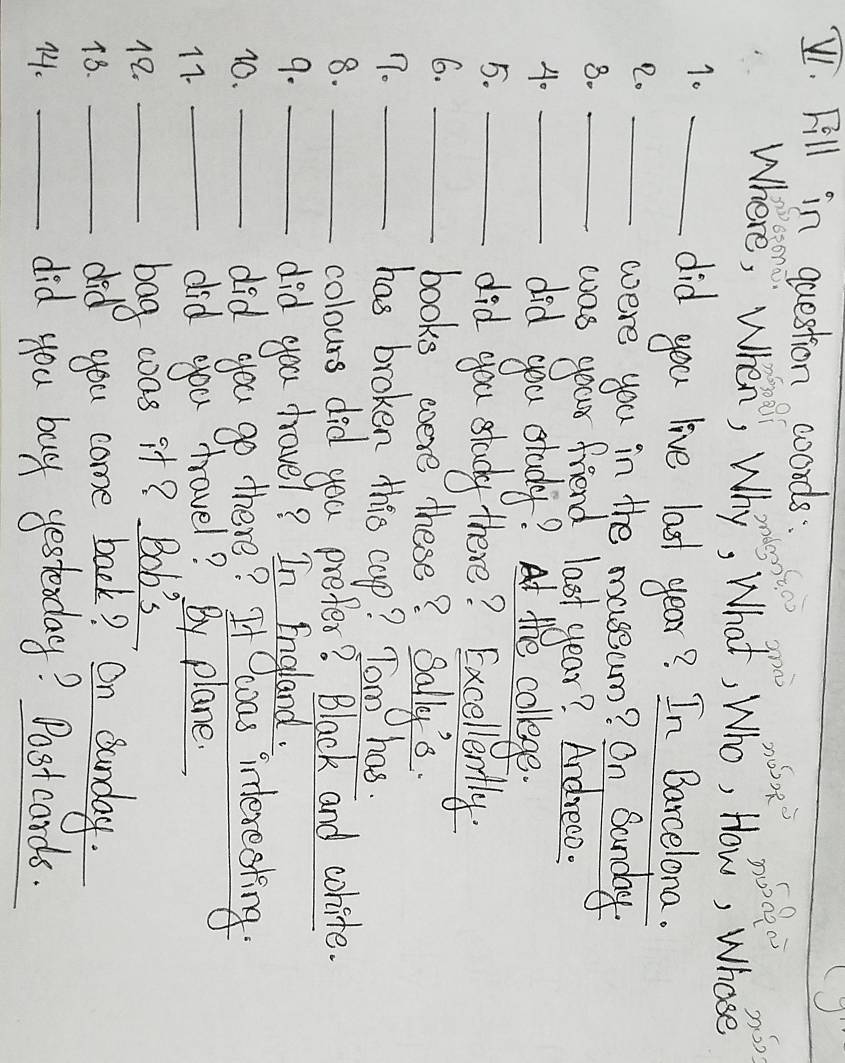 VI. Fill in question words:
Where, When, Why, What, Who, How, Whose
1. ______ did you live last year? In Barcelona.
2. ______ were you in the museum? On Sunday.
3. ______ was your friend last year? Andrew.
4. ______ did you study? At the college.
5. ______ did you study there? Excellently.
6. ______ books were these? Sally's.
7. ______ has broken this cup? Tom has.
8. ______ colours did you prefer? Black and white.
9. ______ did you travel? In England.
10. ______ did you go there? It was interesting.
11. ______ did you travel? By plane.
12. ______ bag was it? Bob's
13. ______ did you come back? On Sunday.
14. ______ did you buy yesterday? Postcards.